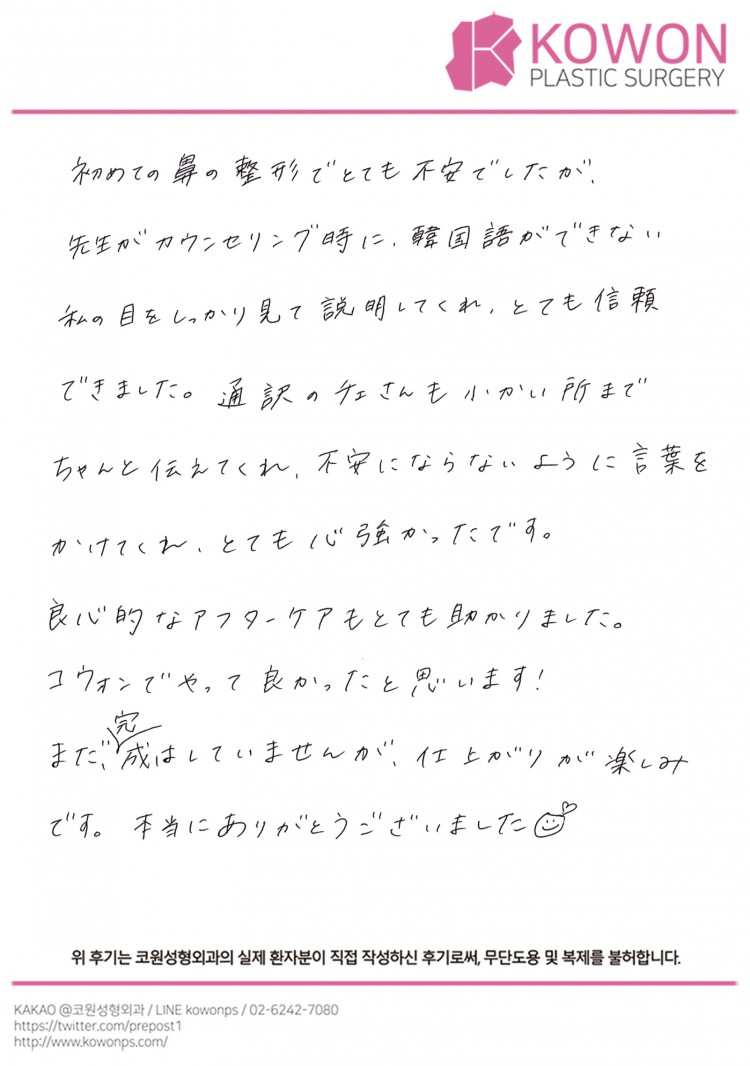 KOWON
PLASTIC SURGERY
初めての鼻の整形でとても不安でしたが、
先生がカウンセリング時に、韓国語ができない
私の目をしっかり見て説明してくれ、とても信頼
できました。通訳のチェさんも小かい所まで
ちゃんと伝えてくれ、不安にならないように言葉を
かけてくれ、とても心強かったです。
良心的なアフターケアもとても助かりました。
コウォンでやって良かったと思います!
まだ、完成はしていませんが、仕上がりが楽しみ
です。本当にありがとうございました
위 후기는 코원성형외과의 실제 환자분이 직접 작성하신 후기로써, 무단도용 및 복제를 불허합니다.
KAKAO @코원성형외과 / LINE kowonps / 02-6242-7080
https://twitter.com/prepost1
http://www.kowonps.com/